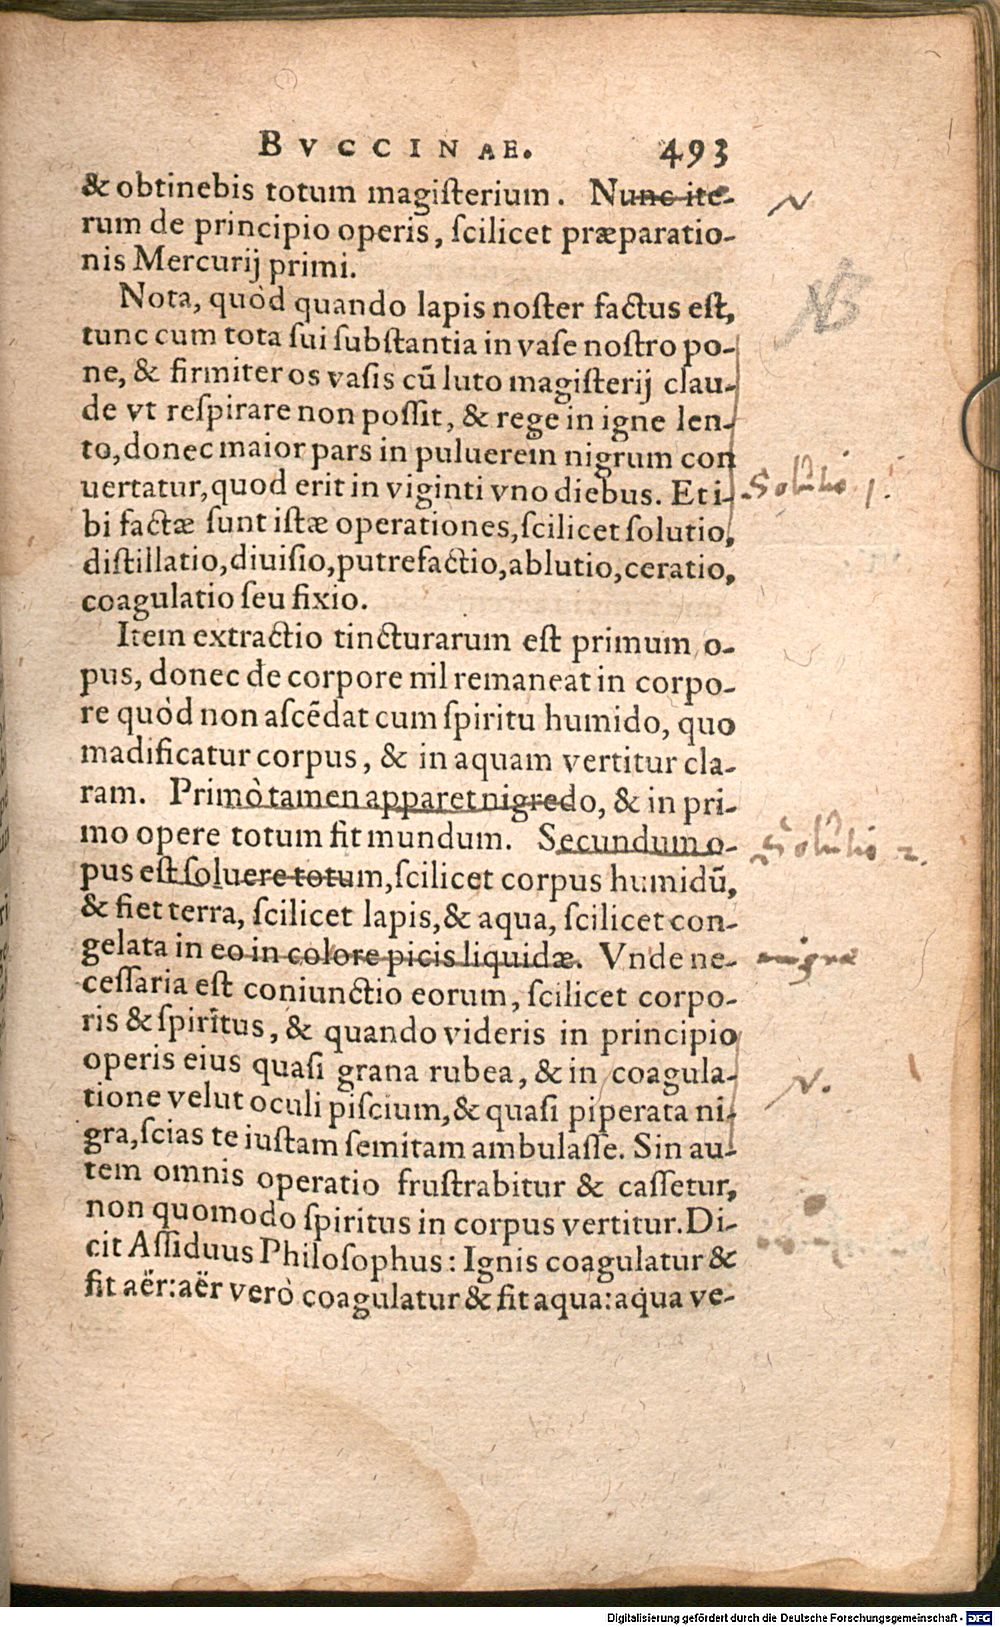 BVCCINAE. 493
& obtinebis totum magiſterium. Nunc ite-
rum de principio operis, ſcilicet præparatio-
nis Mercurij primi.
N
Nota, quòd quando lapis noſter factus eſt,
NB
tunc cum tota ſui ſubſtantia in vaſe noſtro po-
ne, & firmiter os vaſis cũ luto magiſterij clau-
de vt reſpirare non poſſit, & rege in igne len-
to, donec maior pars in puluerem nigrum con
uertatur, quod erit in viginti vno diebus. Et i-
Solutio 1.
bi factæ ſunt iſtæ operationes, ſcilicet ſolutio,
diſtillatio, diuiſio, putrefactio, ablutio, ceratio,
coagulatio ſeu fixio.
Item extractio tincturarum eſt primum o-
pus, donec de corpore nil remaneat in corpo-
re quòd non aſcẽdat cum ſpiritu humido, quo
madificatur corpus, & in aquam vertitur cla-
ram. Primò tamen apparet nigredo, & in pri-
mo opere totum fit mundum. Secundum o-
Solutio 2.
pus eſt ſoluere totum, ſcilicet corpus humidũ,
& fiet terra, ſcilicet lapis, & aqua, ſcilicet con-
gelata in eo in colore picis liquidæ. Vnde ne-
nigra
ceſſaria eſt coniunctio eorum, ſcilicet corpo-
ris & ſpiritus, & quando videris in principio
operis eius quaſi grana rubea, & in coagula-
N.
tione velut oculi piſcium, & quaſi piperata ni-
gra, ſcias te iuſtam ſemitam ambulaſſe. Sin au-
tem omnis operatio fruſtrabitur & caſſetur,
non quomodo ſpiritus in corpus vertitur. Di-
cit Aſſiduus Philoſophus: Ignis coagulatur &
fit aër: aër verò coagulatur & fit aqua: aqua ve-
Digitalisierung gefördert durch die Deutsche Forschungsgemeinschaft - DFG